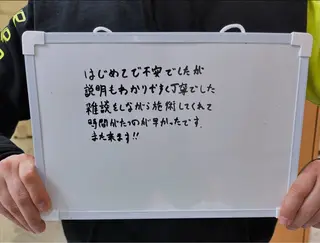 はじめてで不安でしたが
説明もわかりやすく丁寧でした
雑談もしながら施術してくれて
時間がたつのが早かったです。
また来ます!!